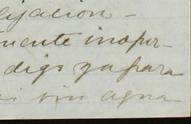 ligacion -
mente inopor-
digo ya para
sin agua